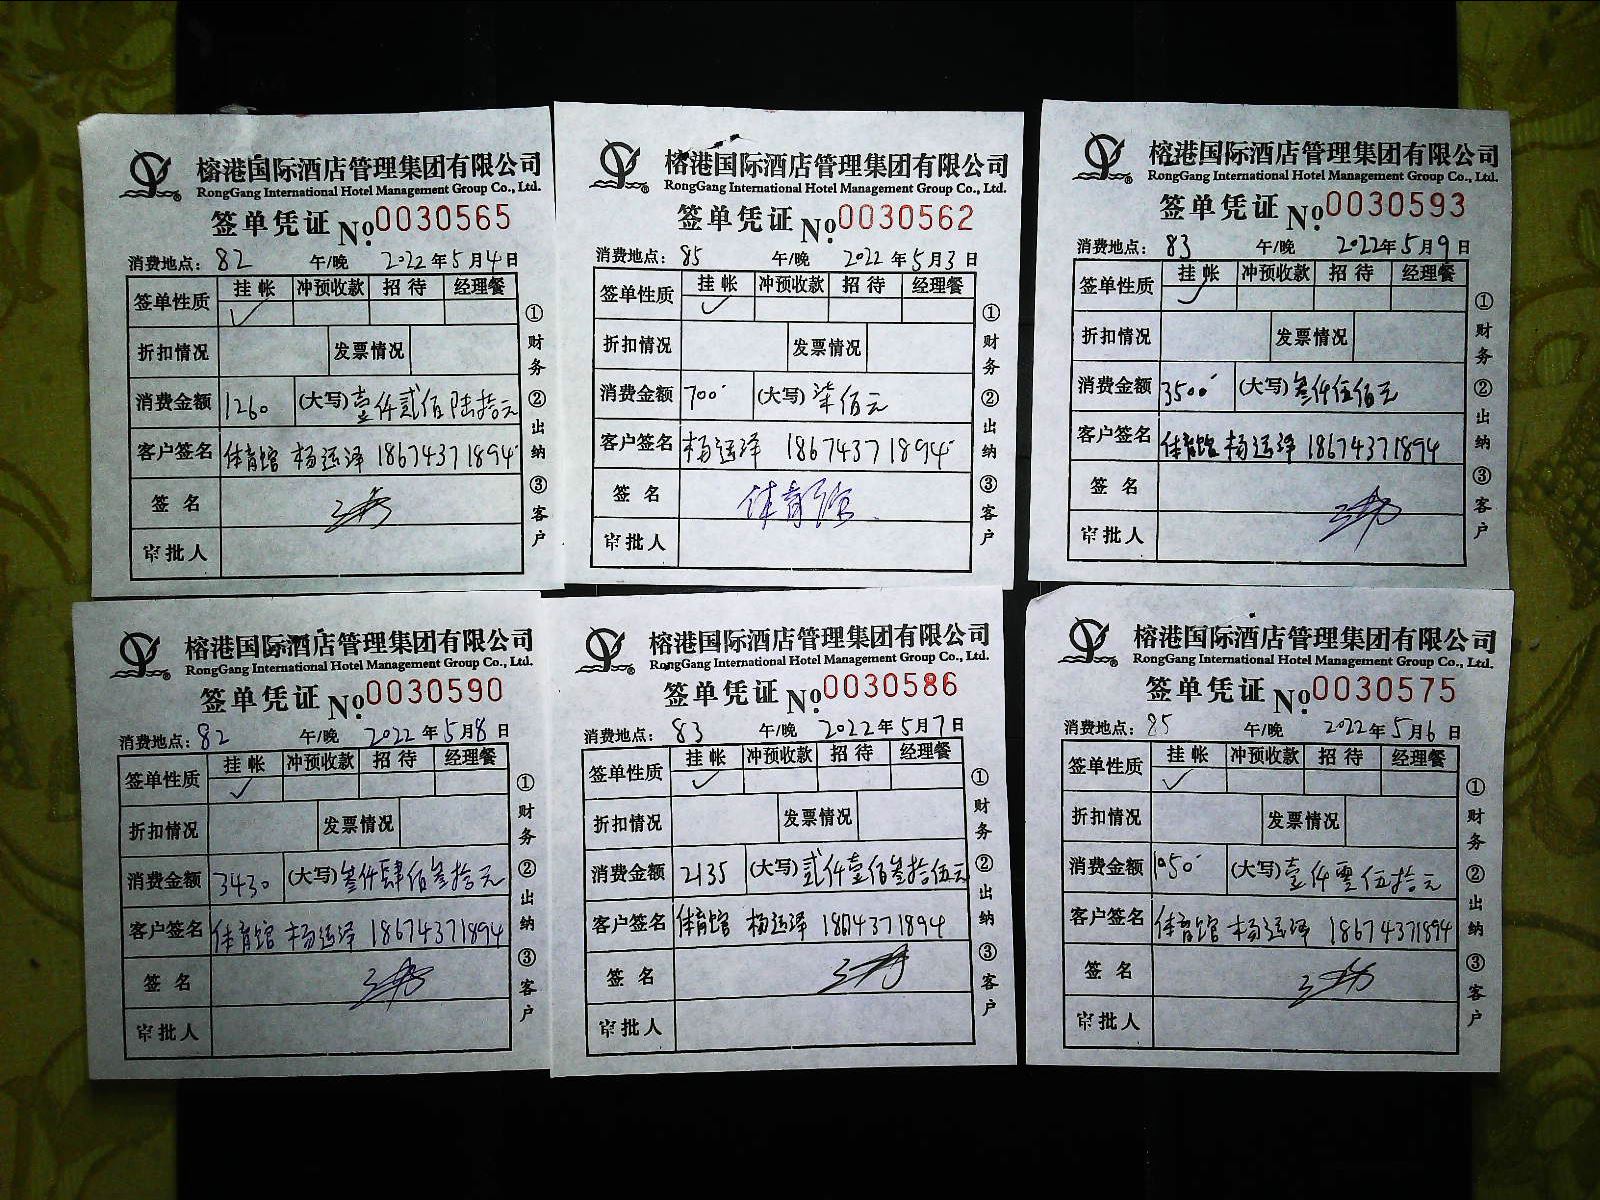 榕港国际酒店管理集团有限公司
RongGang International Hotel Management Group Co., Ltd.
签单凭证 No.0030565
消费地点：82 午/晚 2022年5月4日
签单性质 挂帐 冲预收款 招待 经理餐
✓
折扣情况 发票情况
消费金额 1260 (大写)壹仟贰佰陆拾元
客户签名 体育馆 杨运泽 18674371894
签名
审批人
①财务②出纳③客户
榕港国际酒店管理集团有限公司
RongGang International Hotel Management Group Co., Ltd.
签单凭证 No.0030562
消费地点：85 午/晚 2022年5月3日
签单性质 挂帐 冲预收款 招待 经理餐
✓
折扣情况 发票情况
消费金额 700 (大写)柒佰元
客户签名 杨运泽 18674371894
签名 体育馆
审批人
①财务②出纳③客户
榕港国际酒店管理集团有限公司
RongGang International Hotel Management Group Co., Ltd.
签单凭证 No.0030593
消费地点：83 午/晚 2022年5月9日
签单性质 挂帐 冲预收款 招待 经理餐
✓
折扣情况 发票情况
消费金额 3500 (大写)叁仟伍佰元
客户签名 体育馆 杨运泽 18674371894
签名
审批人
①财务②出纳③客户
榕港国际酒店管理集团有限公司
RongGang International Hotel Management Group Co., Ltd.
签单凭证 No.0030590
消费地点：82 午/晚 2022年5月8日
签单性质 挂帐 冲预收款 招待 经理餐
✓
折扣情况 发票情况
消费金额 3430 (大写)叁仟肆佰叁拾元
客户签名 体育馆 杨运泽 18674371894
签名
审批人
①财务②出纳③客户
榕港国际酒店管理集团有限公司
RongGang International Hotel Management Group Co., Ltd.
签单凭证 No.0030586
消费地点：83 午/晚 2022年5月7日
签单性质 挂帐 冲预收款 招待 经理餐
✓
折扣情况 发票情况
消费金额 2135 (大写)贰仟壹佰叁拾伍元
客户签名 体育馆 杨运泽
签名
审批人
①财务②出纳③客户
榕港国际酒店管理集团有限公司
RongGang International Hotel Management Group Co., Ltd.
签单凭证 No.0030575
消费地点：85 午/晚 2022年5月6日
签单性质 挂帐 冲预收款 招待 经理餐
✓
折扣情况 发票情况
消费金额 1050 (大写)壹仟零伍拾元
客户签名 体育馆 杨运泽 18674371894
签名
审批人
①财务②出纳③客户